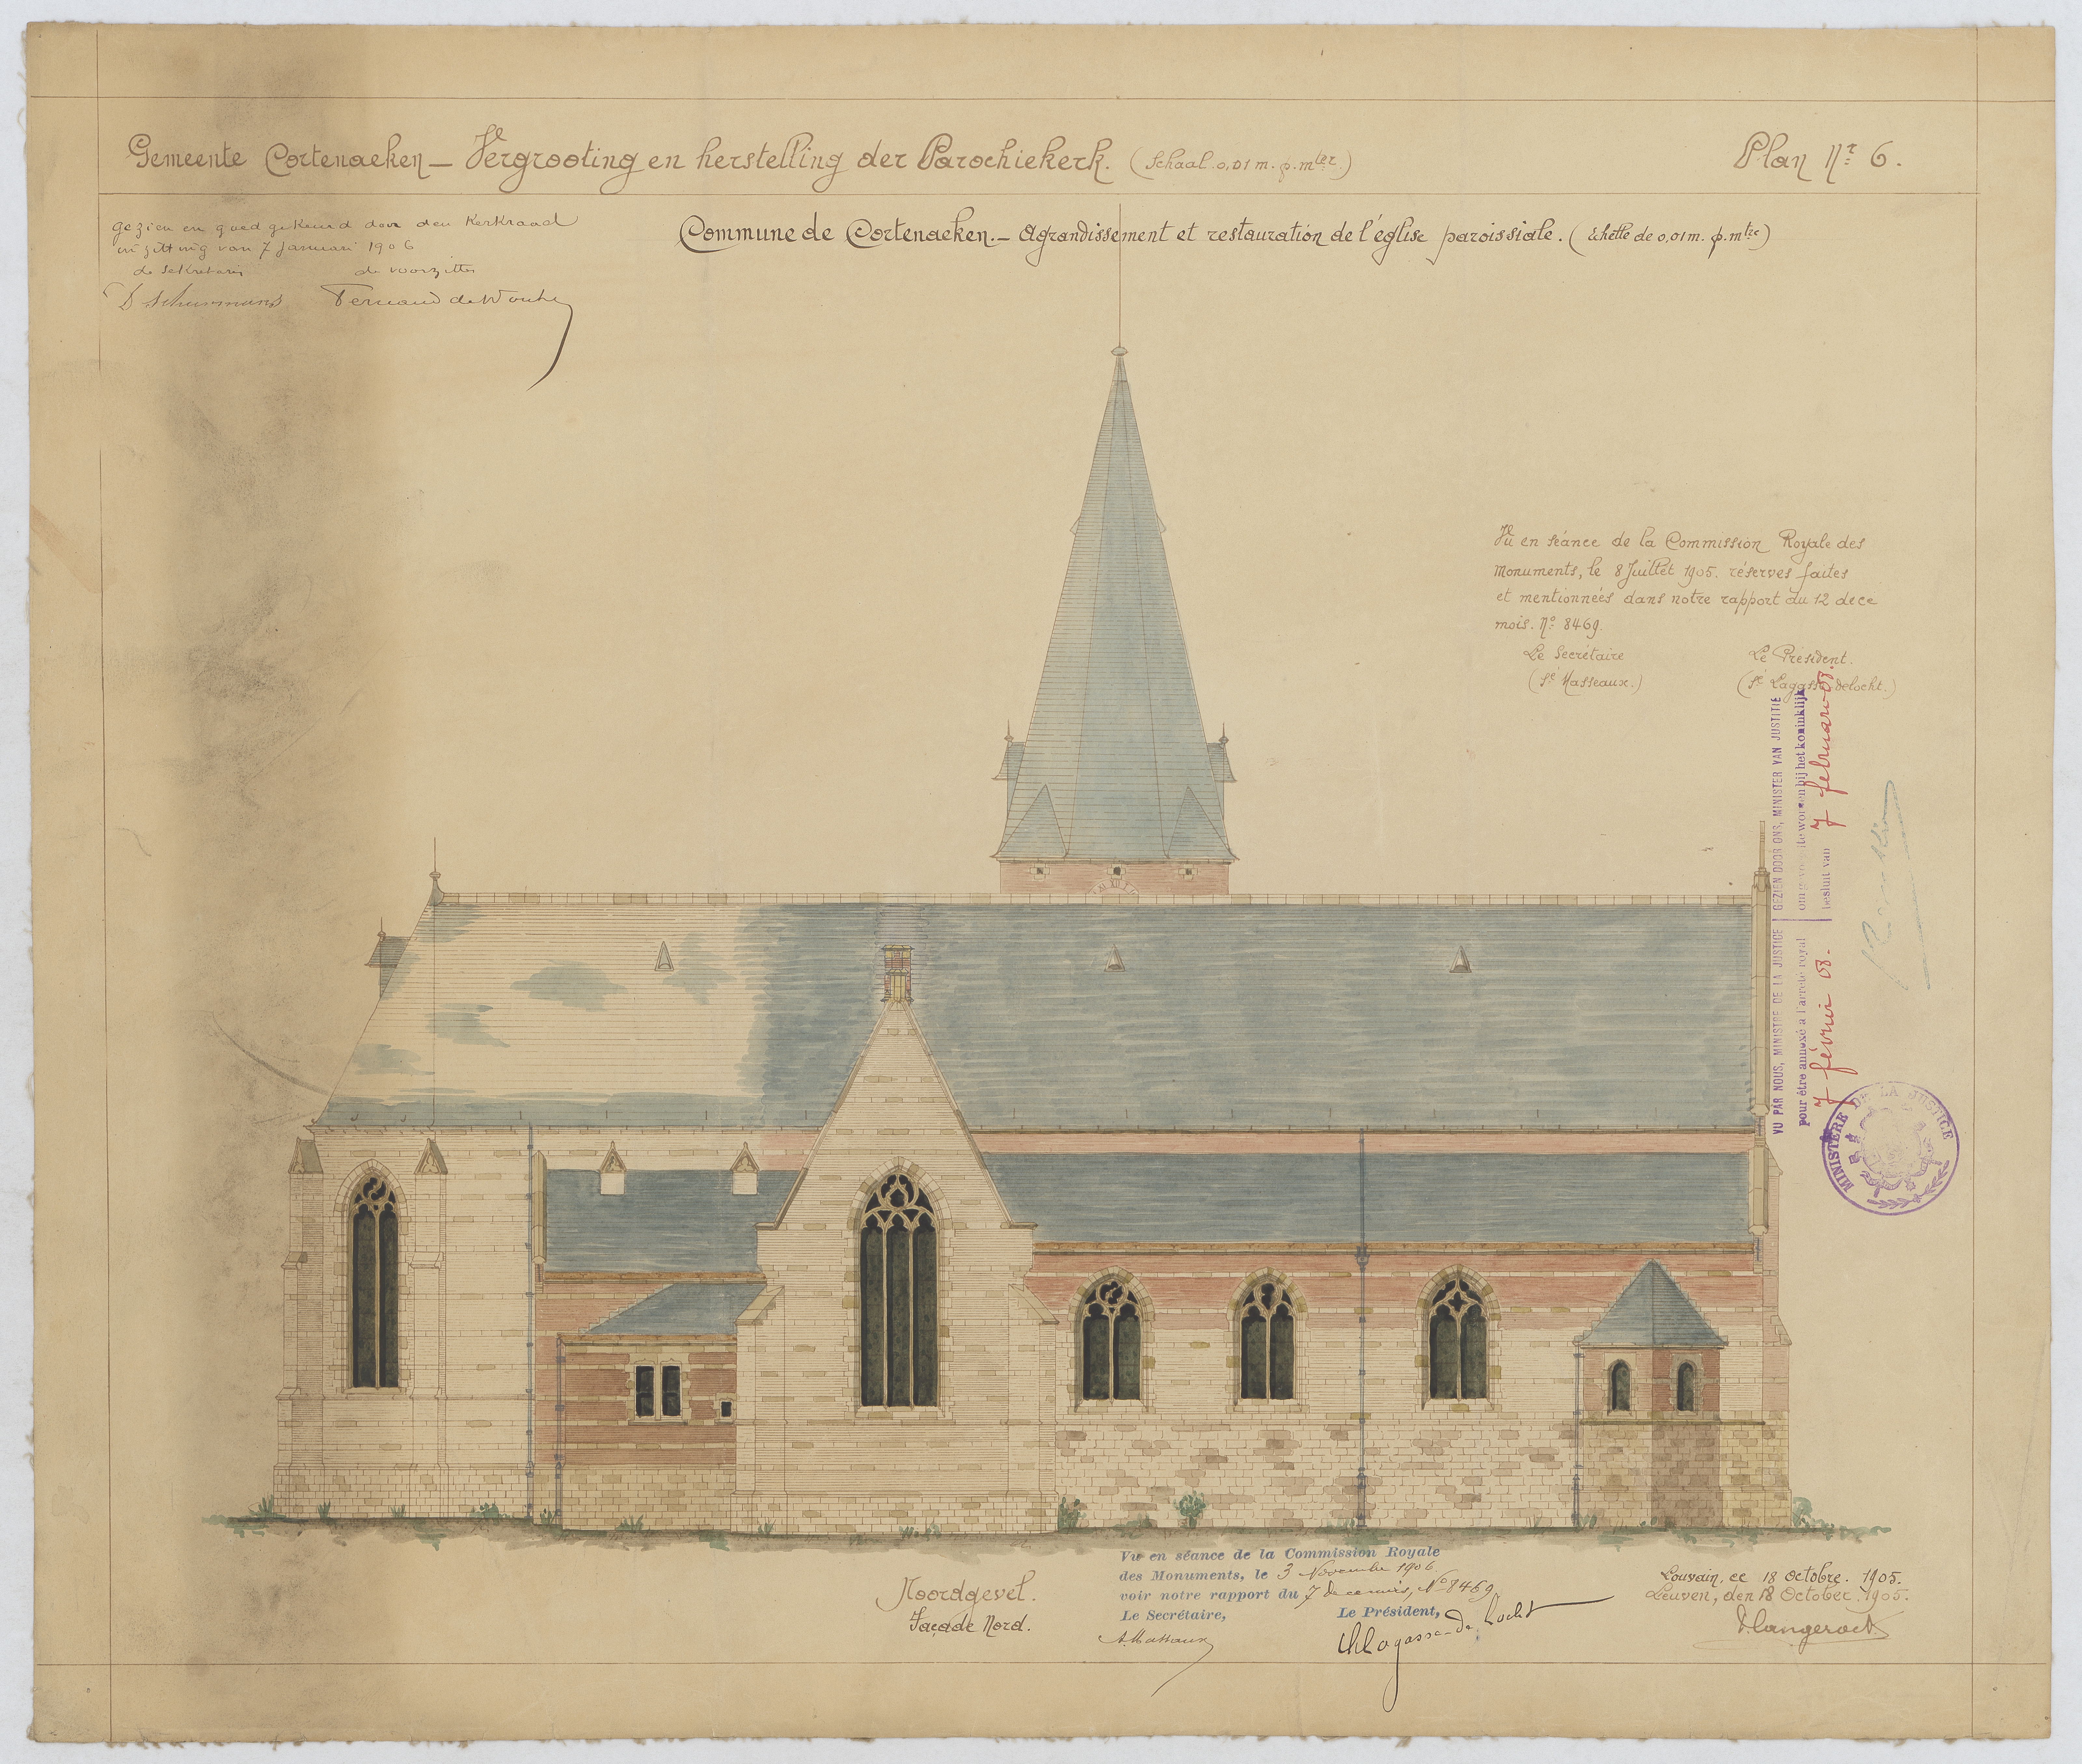 Gemeente Cortenaeken — Vergrooting en herstelling der Parochiekerk. (Schaal 0,01 m. p. mter)
Plan Nr. 6.
Commune de Cortenaeken.— Agrandissement et restauration de l'église paroissiale. (Echelle de 0,01 m. p. mtre)
gezien en goed gekeurd door den Kerkraad
in zitting van 7 Januari 1906
de sekretaris de voorzitter
D Schurmans Fernand de Wouters
Vu en séance de la Commission Royale des
Monuments, le 8 Juillet 1905. réserves faites
et mentionnées dans notre rapport du 12 de ce
mois. No. 8469.
Le Secrétaire Le Président.
(Sé Masseaux.) (Sé Lagasse delocht.)
VU PAR NOUS, MINISTRE DE LA JUSTICE
pour être annexé à l'arrêté royal
7 février 08.
GEZIEN DOOR ONS, MINISTER VAN JUSTITIE
om gevoegd te worden bij het koninklijk
besluit van 7 februari 08.
MINISTÈRE DE LA JUSTICE
Noordgevel.
Façade Nord.
Vu en séance de la Commission Royale
des Monuments, le 3 Novembre 1906
voir notre rapport du 7 de ce mois, No 8469
Le Secrétaire, Le Président,
A. Massaux Ch Lagasse-de Locht
Louvain, ce 18 octobre. 1905.
Leuven, den 18 October. 1905.
P. Langerock